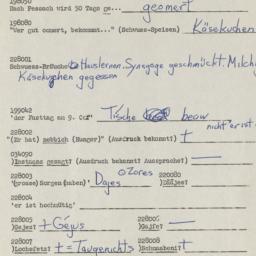 198050
Nach Pessach wird 50 Tage ge... geomert
198080
"Wer gut oomert, bekommt..." (Schwuos-Speisen) Käsekuchen
228001
Schwuess-Bräuche Hauslernen. Synagoge geschmückt. Milch
Käsekuchen gegessen
199042
'der Fasttag am 9. Od' Tische beow
nicht er ist
228002
"(Er hat) nebbich (Hunger)" (Ausdruck bekannt?) +
034090
)Instuos gesagt? (Ausdruck bekannt? Aussprache?) —
228003 o Zores 220080
'(grosse)Sorgen(haben)' Dajes )Dajes? —
228004
'er ist hochmütig' —
228005 228006
)Gajes? + Géjus )Gaife? —
228007 228008
)Lochofets? + = Taugenichts )Schumaheni? +